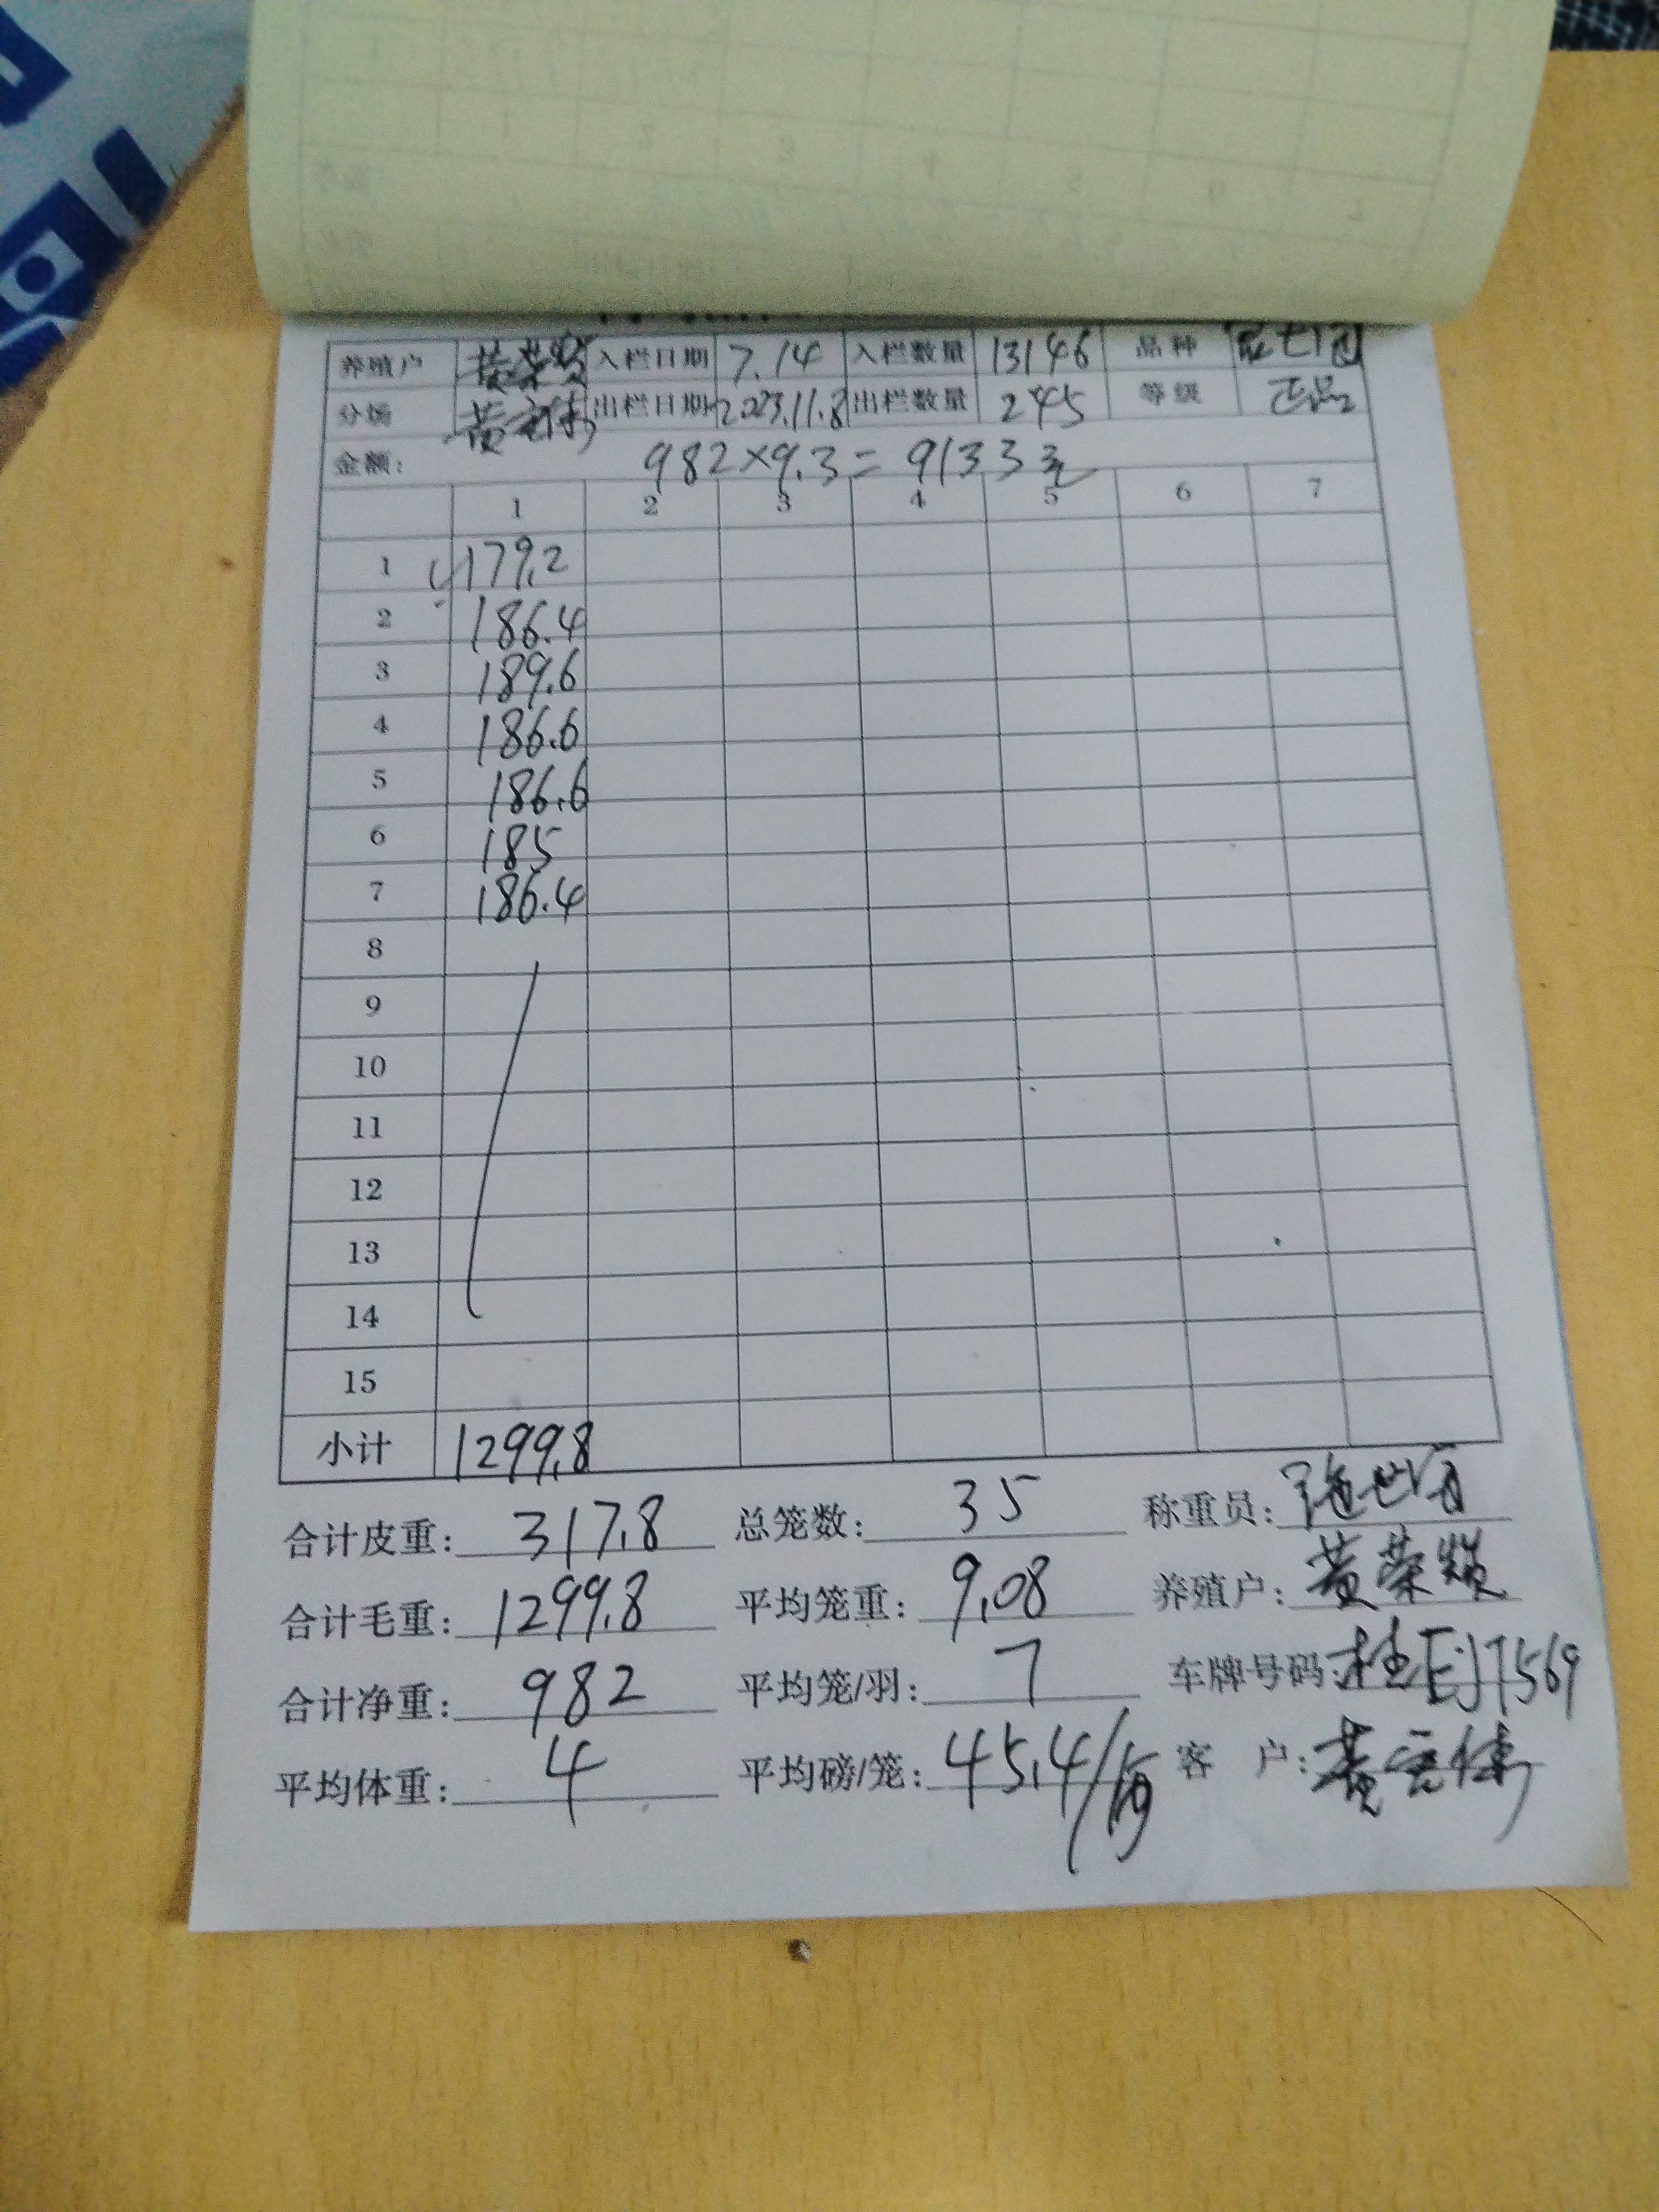 养殖户 黄荣焕 入栏日期 7.14 入栏数量 13146 品种
分场 黄 出栏日期 2023.11.8 出栏数量 245 等级 正品
金额: 982×9.3=9133元
1 2 3 4 5 6 7
1 179.2
2 186.4
3 189.6
4 186.6
5 186.6
6 185
7 186.4
8
9
10
11
12
13
14
15
小计 1299.8
合计皮重: 317.8 总笼数: 35 称重员:
合计毛重: 1299.8 平均笼重: 9.08 养殖户: 黄荣焕
合计净重: 982 平均笼/羽: 7 车牌号码: 桂EJ7569
平均体重: 4 平均磅/笼: 45.4/ 客 户: 黄